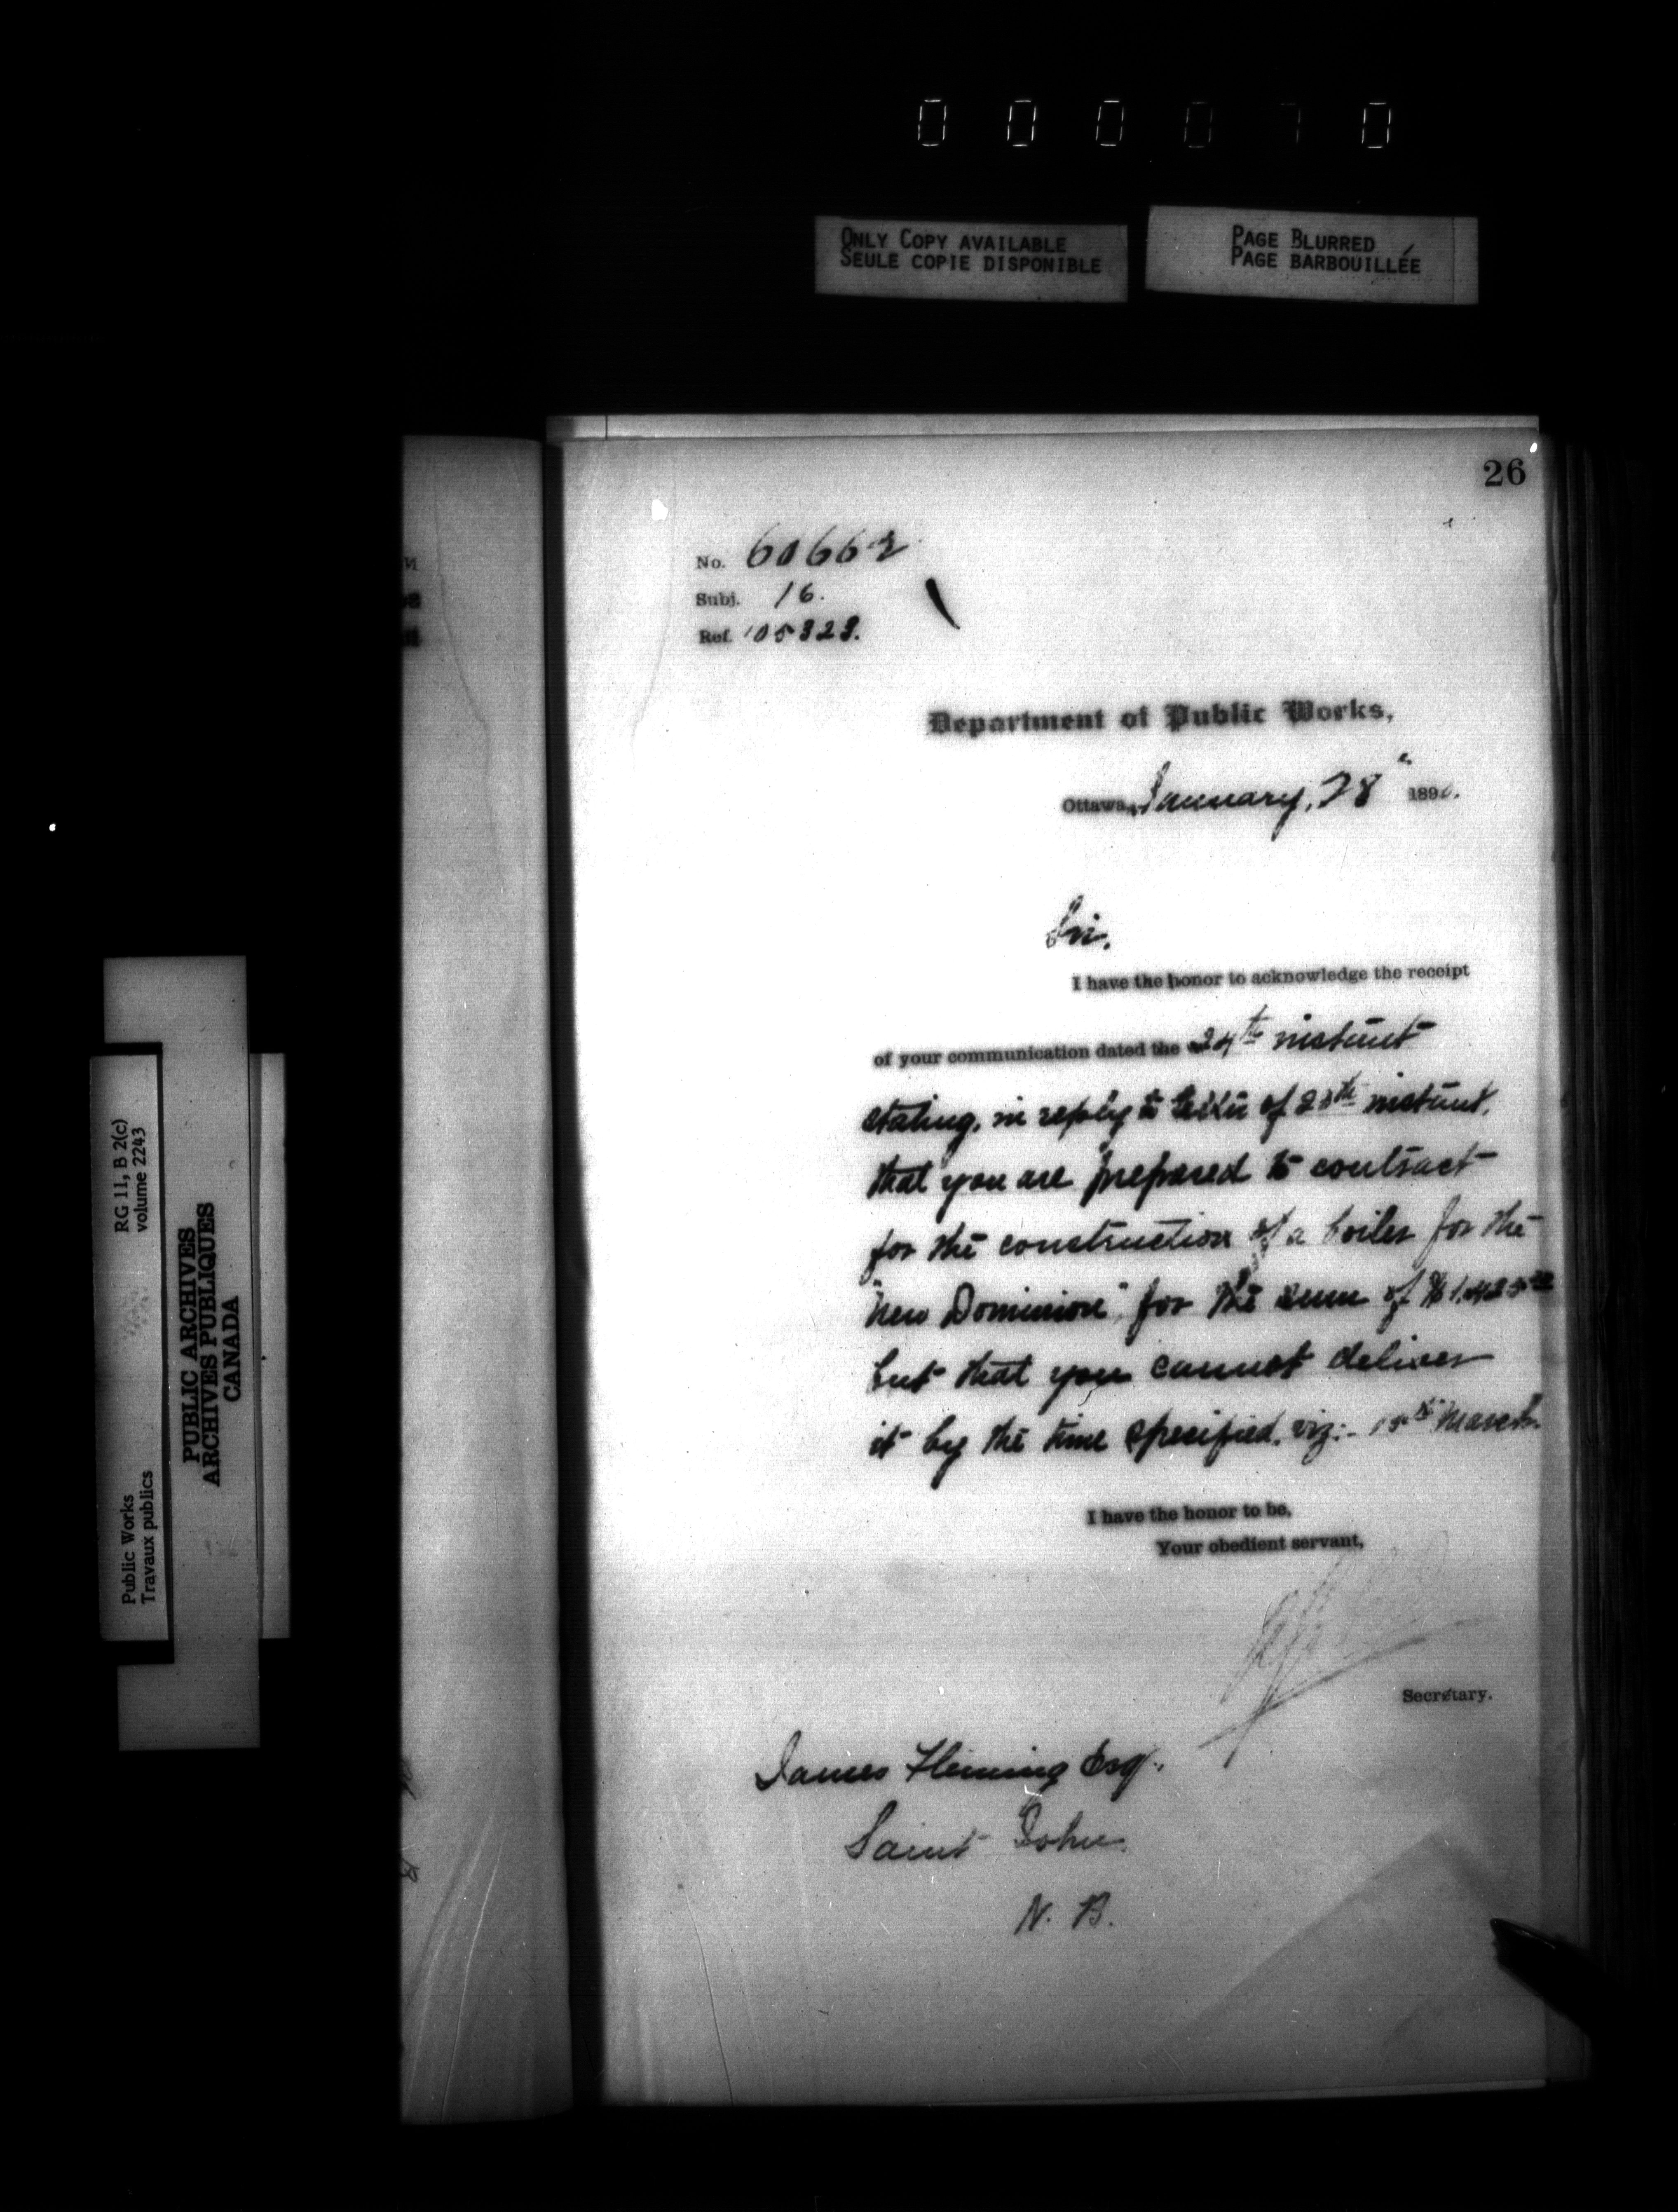 0 0 0 0 7 0
ONLY COPY AVAILABLE
SEULE COPIE DISPONIBLE
PAGE BLURRED
PAGE BARBOUILLÉE
26
No. 60662
Subj. 16.
Ref. 105323.
Department of Public Works,
Ottawa, January, 28" 189
Sir,
I have the honor to acknowledge the receipt
of your communication dated the 24th instant
stating, in reply to letter of instant,
that you are prepared to contract
for the construction of a boiler for the
"New Dominion" for the sum of
but that you cannot deliver
it by the time specified, viz:- 15th March.
I have the honor to be,
Your obedient servant,
Secretary.
James Fleming Esq.
Saint John
N. B.
RG 11, B 2(c)
volume 2243
PUBLIC ARCHIVES
ARCHIVES PUBLIQUES
CANADA
Public Works
Travaux publics